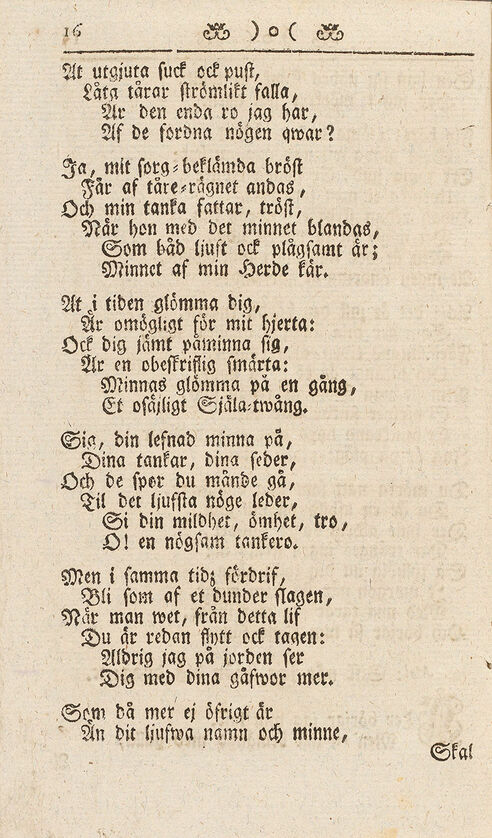 16 ) o (
At utgjuta suck ock pust,
Låta tårar strömlikt falla,
Är den enda ro jag har,
Af de fordna nögen qwar?
Ja, mit sorg-beklämda bröst
Får af tåre-rägnet andas,
Och min tanka fattar, tröst,
När hon med det minnet blandas,
Som båd ljuft ock plågsamt är;
Minnet af min Herde kär.
At i tiden glömma dig,
Är omögligt för mit hjerta:
Ock dig jämt påminna sig,
Är en obeskriflig smärta:
Minnas glömma på en gång,
Et osäjligt Själa-twång.
Sig, din lefnad minna på,
Dina tankar, dina seder,
Och de spor du månde gå,
Til det ljufsta nöge leder,
Si din mildhet, ömhet, tro,
O! en nögsam tankero.
Men i samma tidz fördrif,
Bli som af et dunder slagen,
När man wet, från detta lif
Du är redan flytt ock tagen:
Aldrig jag på jorden ser
Dig med dina gåfwor mer.
Som då mer ej öfrigt är
Än dit ljufwa namn och minne,
Skal